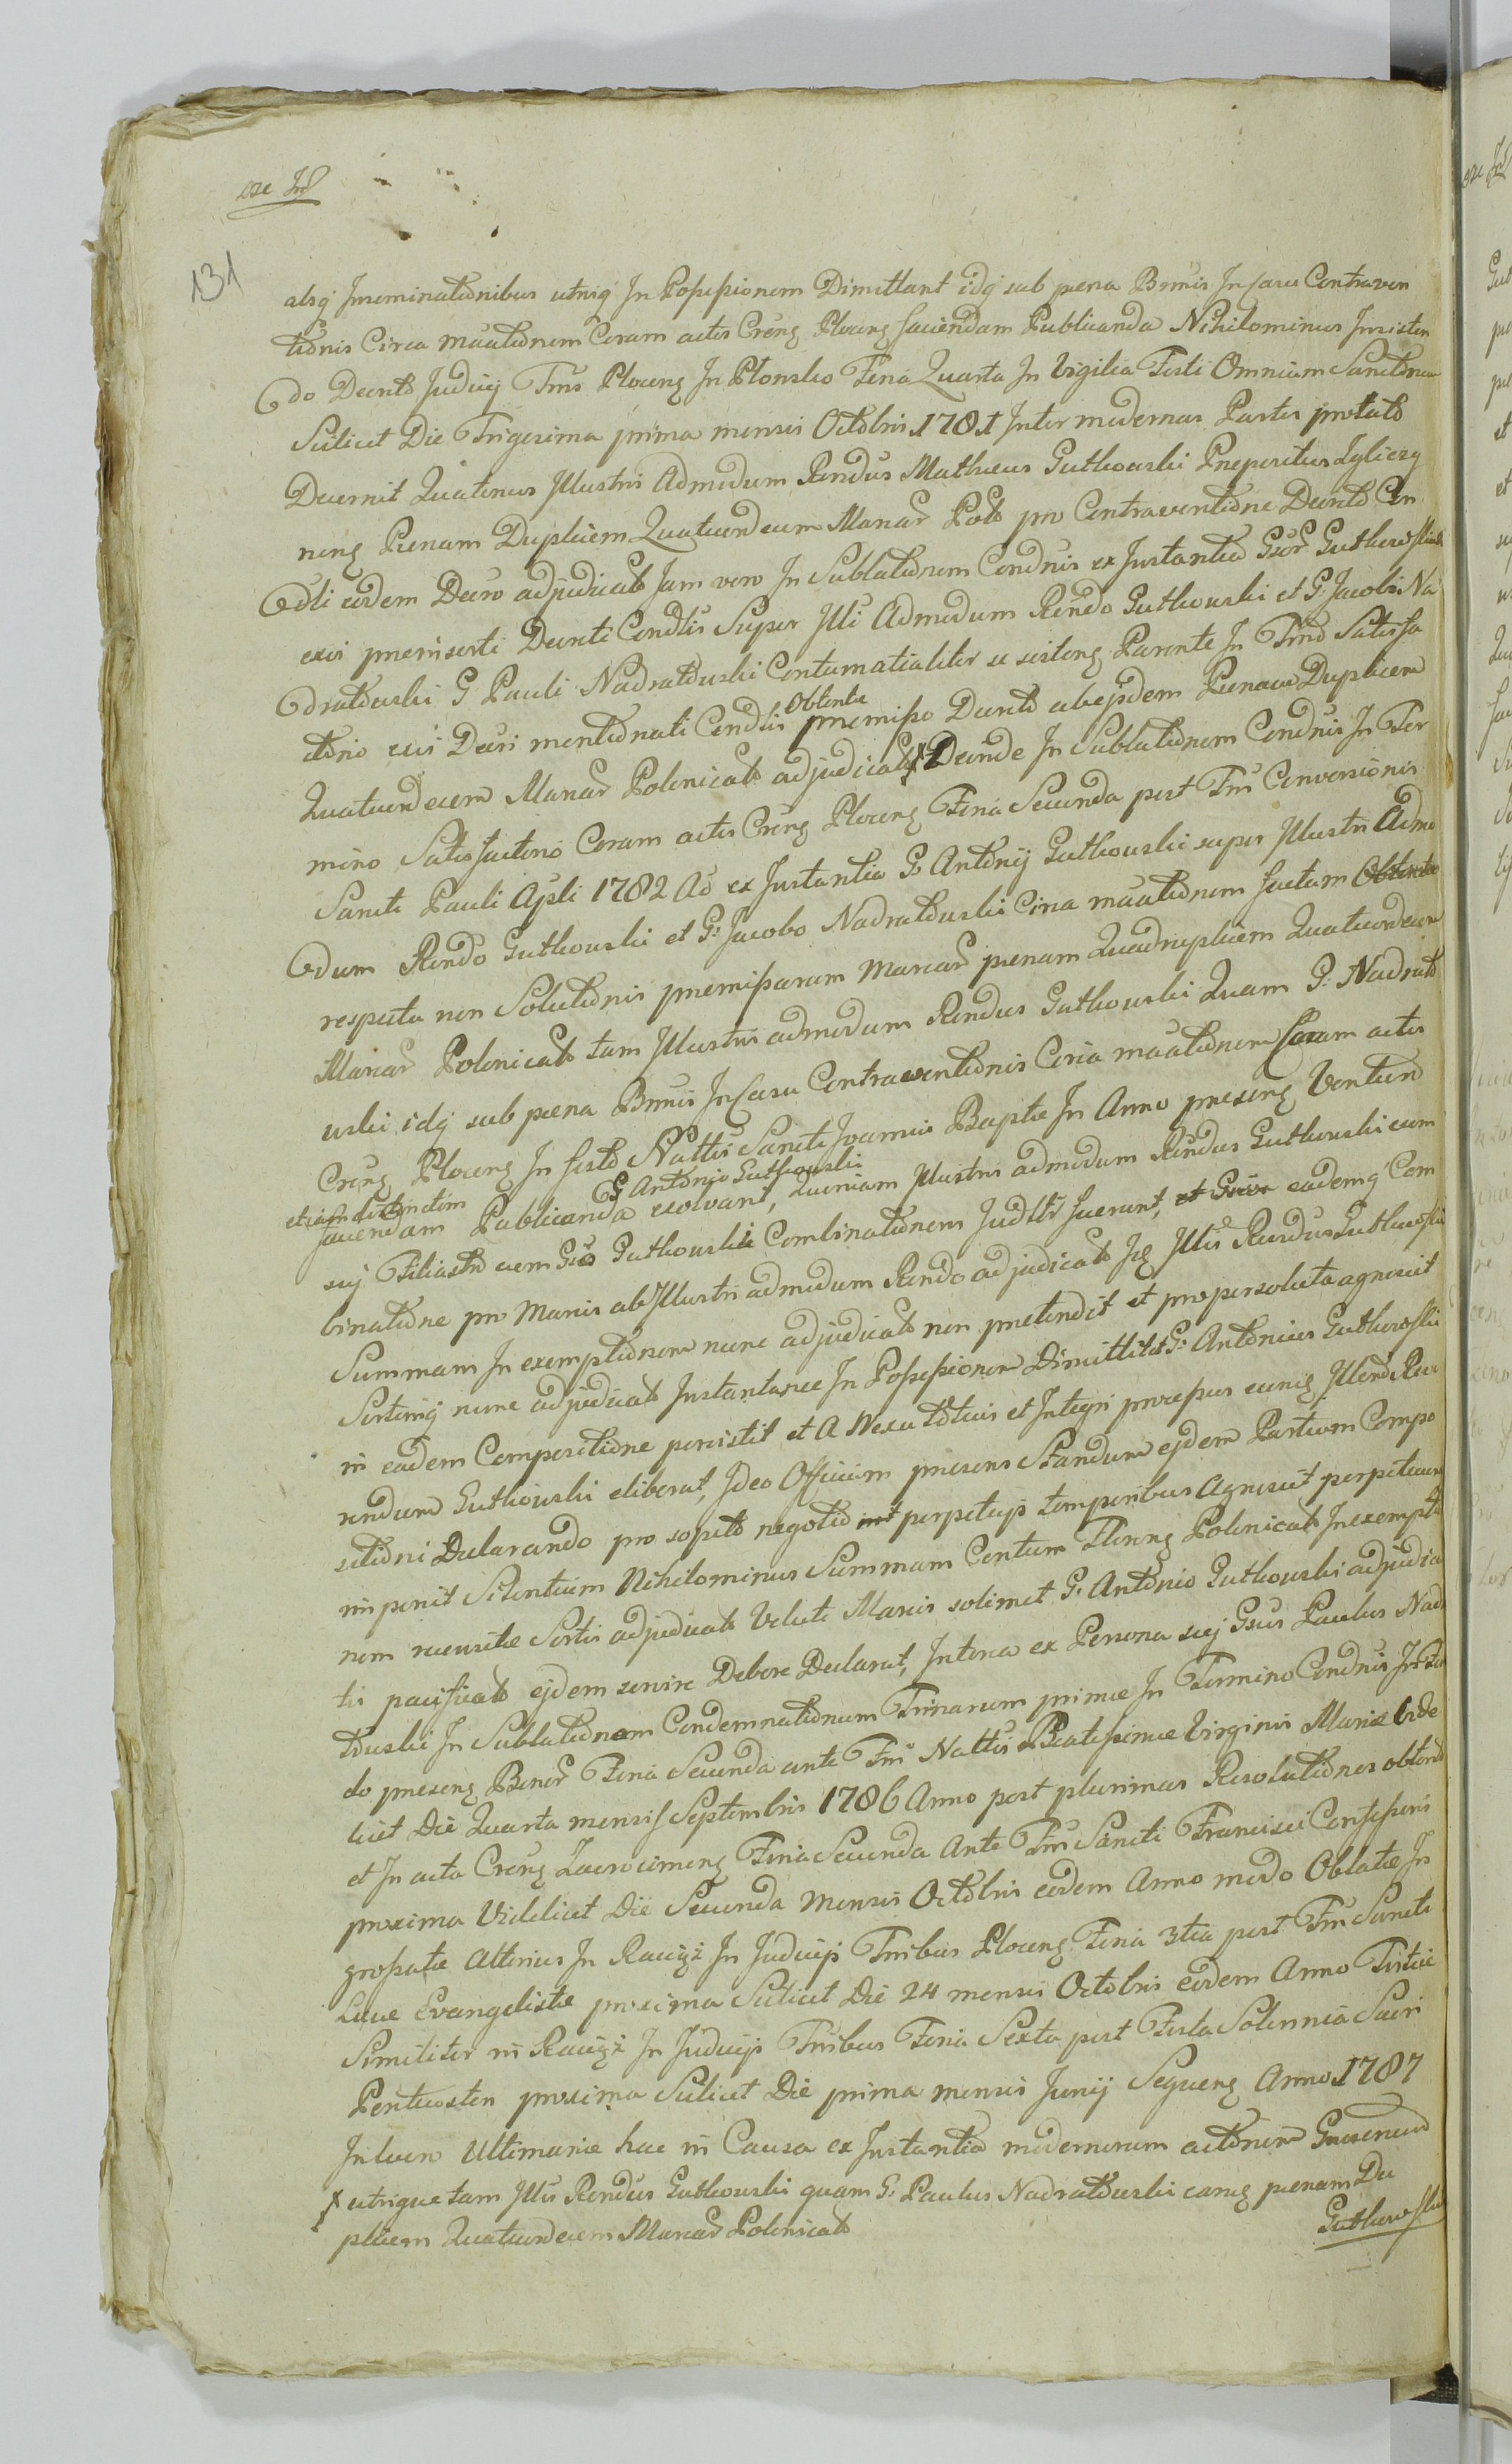 131
absq Inominationibus utrisq In Possessionem Dimittant idq sub pena Bnnis In Casu Contraven
tionis Circa maationem Coram actis Crens Plocens faciendam Publicanda Nihilominus Insisten
do Decreto Judicij Tmis Plocens In Plonsko Feria Quarta In Vigilia Festi Omnium Sanctorum
Scilicet Die Trigesima prima mensis Octobris 1781 Inter modernas Partes prolato
Decernit Quatenus Illustris Admodum Rendus Mathæus Gutkowski Prepositus
nens Penam Duplicem Quatuordecem Marcar Polo pro Contraventione Decreto Con
dli eidem Decro adjudicato Jam vero In Sublationem Condnis ex Instantia Gsor Gutkowskich
exis preinserti Decreti Condlis Super Illi Admodum Rendo Gutkowski et G: Jacobi Na
dratowski G Pauli Nadratowski Contumatialiter se sistens Parente In Tmo Satisfa
ctorio exis Decri mentionati Condlis Obtenta premisso Decreto ab ejsdem Penam Duplicem
Quatuordecem Marcar Polonicalo adjudicato Deinde In Sublationem Condnis In Ter
mino Satisfactorio Coram actis Crens Plocens Feria Secunda post Fm Conversionis
Sancti Pauli Apli 1782 Ao ex Instantia G: Antonij Gutkowski super Illustri Admo
dum Rendo Gutkowski et G: Jacobo Nadratowski Circa maationem factam Obtentæ
respectu non Solutionis premissarum Marcar penam Quadruplicem Quatuordecem
Marcar Polonicalo tam Illustris admodum Rendus Gutkowski Quam G: Nadrato
wski idq sub pœna Bnnis In Casu Contraventionis Circa maationem Coram actis
Crens Plocens In festo Nattis Sancti Joannis Baptæ In Anno presens Ventura
faciendam Publicanda G Antonio Gutkowski exolvant, Quoniam Illustris admodum Rendus Gutkowski cum
suj Filiastro cum Gso Gutkowski Combinationem Judltr fuerunt, eademq Com
binatione pro Marcis ab Illustri admodum Rendo adjudicato Ils Illris Rendus Gutkowski
Summam In exemptionem nunc adjudicato non pretendit et pro persoluta agnoscit
Sortemq nunc adjudicato Instantanee In Possessionem Dimittit et G: Antonius Gutkowski
in eadem Compositione persistit et A Nexu totius et Integri processus eunq Illend Reve
rendum Gutkowski eliberat, Ideo Officium presens Standum ejdem Partium Compo
sitioni Declarando pro sopito negotio perpetuis temporibus Agnoscit perpetuum
imponit Silentium Nihilominus Summam Centum Florens Polonicalo In exemptio
nem recensitæ Sortis adjudicato Veluti Marcis solimet G: Antonio Gutkowski adjudica
tis pacificato ejdem servire Debere Declarat, Interea ex Persona suj Gsus Paulus Nadra
towski In Sublationem Condemnationum Trinarum primæ In Termino Condnis In
do presens Bonor Feria Secunda ante Fm Nattis Beatissimæ Virginis Mariæ Vide
licet Die Quarta mensis Septembris 1786 Anno post plurimas Resolutiones obtenta
et In acta Crens Zacrocimens Feria Secunda Ante Fm Sancti Francisci Confessoris
proxima Videlicet Die Secunda Mensis Octobris eodem Anno modo Oblatæ In
grossatæ Alterius In In Judicijs Tmibus Plocens Feria 3tia post Fm Sancti
Lucæ Evangelistæ proxima Scilicet Die 24 mensis Octobris eodem Anno Tertiæ
Similiter in In Judicijs Tmibus Feria Sexta post Festa Solennia Sacri
Pentecosten proxima Scilicet Die prima mensis Junij Sequens Anno 1787
In loco Ultimariæ hac in Causa ex Instantia modernorum actorum
utrigue tam Illris Rendus Gutkowski quam G: Paulus Nadratowski pænam Du
plicem Quatuordecem Marcar Polonicalo
Gutkowski